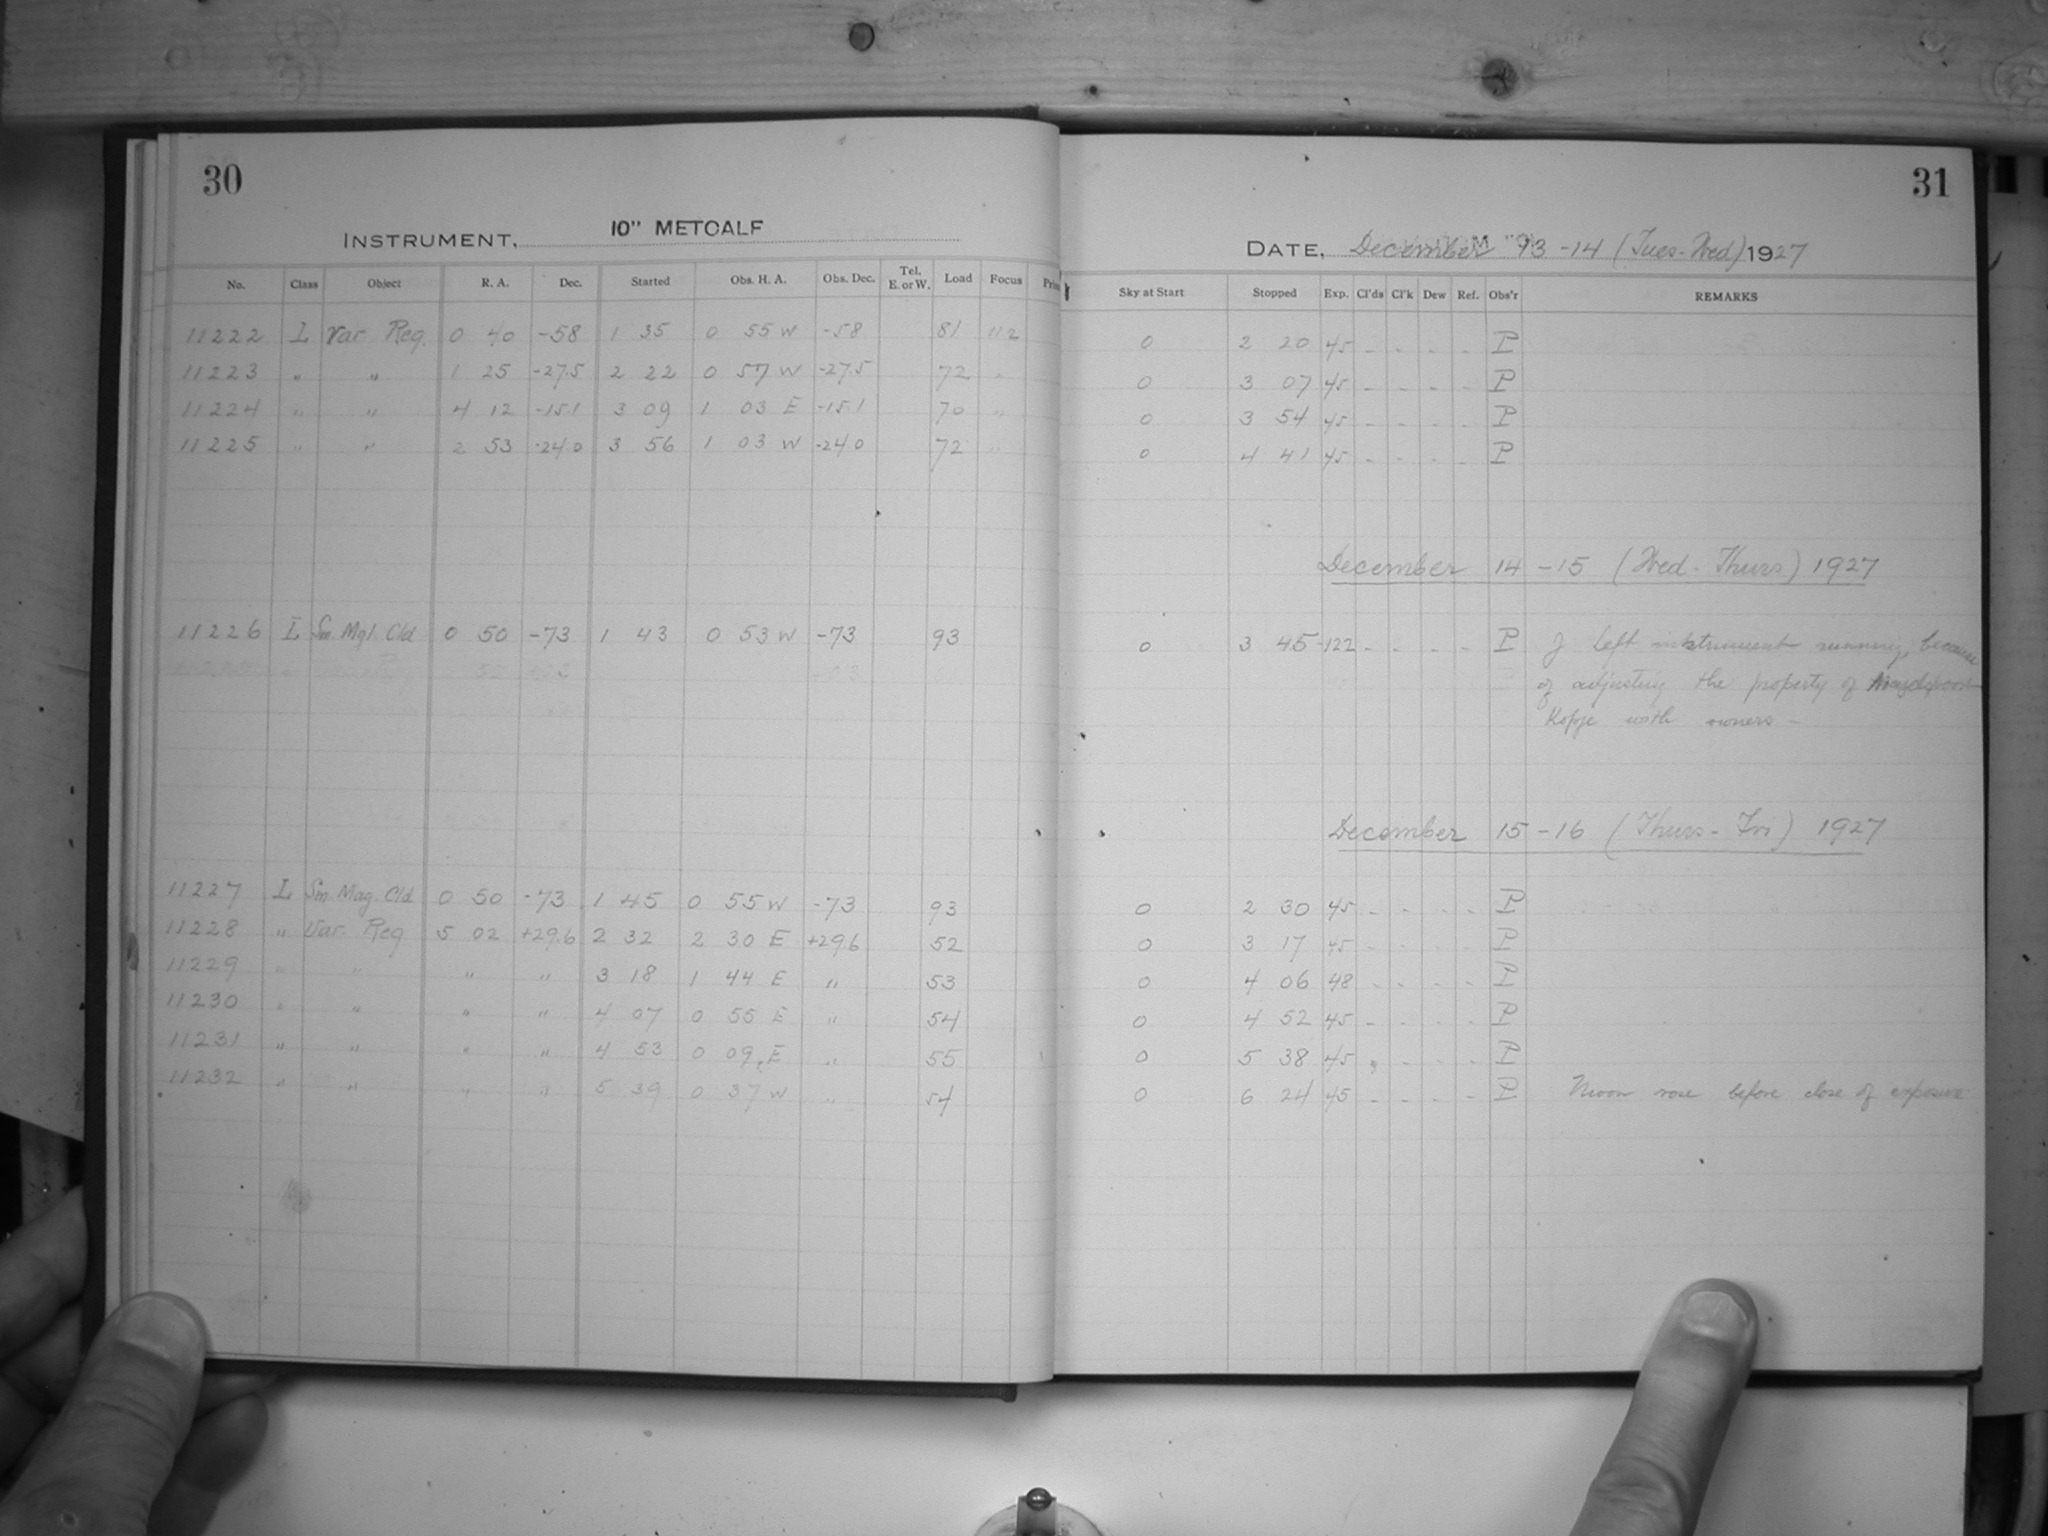 30
INSTRUMENT, 10" METCALF
No. Class Object R. A. Dec. Started Obs. H. A. Obs. Dec. Tel. E. or W. Load Focus
11222 L Var. Reg. 0 40 -58 1 35 0 55 W -58 81 112
11223 " " 1 25 -27.5 2 22 0 57 W -27.5 72 "
11224 " " 4 12 -15.1 3 09 1 03 E -15.1 70 "
11225 " " 2 53 -24.0 3 56 1 03 W -24.0 72 "
11226 L Sm. Mgl. Cld 0 50 -73 1 43 0 53 W -73 93
11227 L Sm. Mag. Cld 0 50 -73 1 45 0 55 W -73 93
11228 " Var. Reg 5 02 +29.6 2 32 2 30 E +29.6 52
11229 " " " " 3 18 1 44 E " 53
11230 " " " " 4 07 0 55 E " 54
11231 " " " " 4 53 0 09 E " 55
11232 " " " " 5 39 0 37 W " 54
31
DATE, December 13-14 (Tues-Wed) 1927
Sky at Start Stopped Exp. Cl'ds Cl'k Dew Ref. Obs'r REMARKS
0 2 20 45 - - - - P
0 3 07 45 - - - - P
0 3 54 45 - - - - P
0 4 41 45 - - - - P
December 14-15 (Wed-Thurs) 1927
0 3 45 122 - - - - P I left instrument running because
of adjusting the property of
Kopje with owners -
December 15-16 (Thurs-Fri) 1927
0 2 30 45 - - - - P
0 3 17 45 - - - - P
0 4 06 48 - - - - P
0 4 52 45 - - - - P
0 5 38 45 - - - - P
0 6 24 45 - - - - P Moon rose before close of exposure